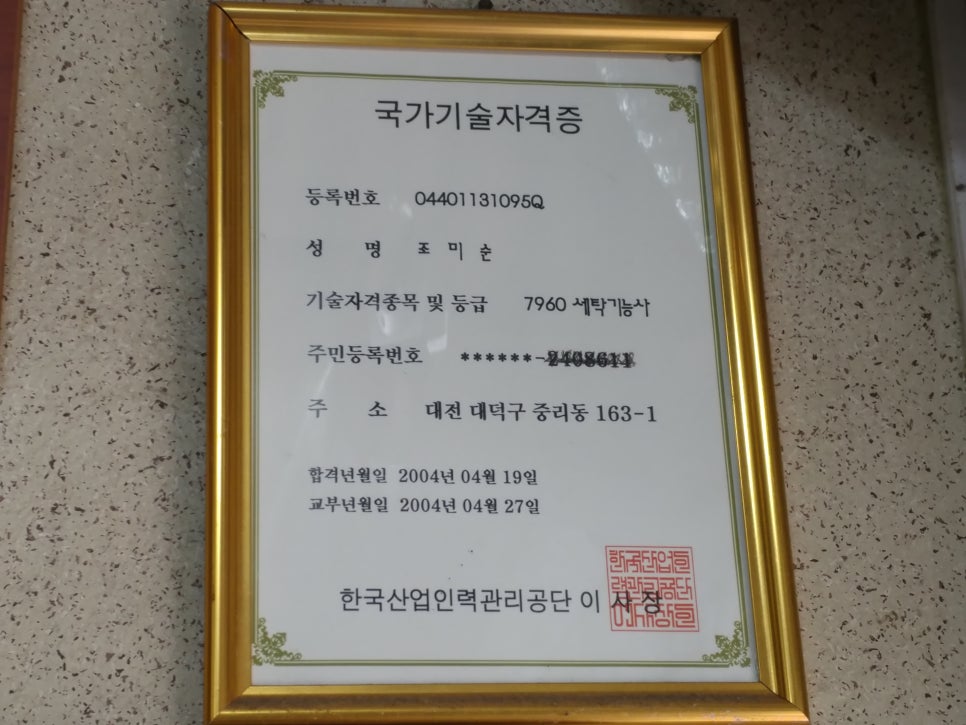 국가기술자격증
등록번호 04401131095Q
성 명 조 미 순
기술자격종목 및 등급 7960 세탁기능사
주민등록번호 ******-
주 소 대전 대덕구 중리동 163-1
합격년월일 2004년 04월 19일
교부년월일 2004년 04월 27일
한국산업인력관리공단 이 사 장